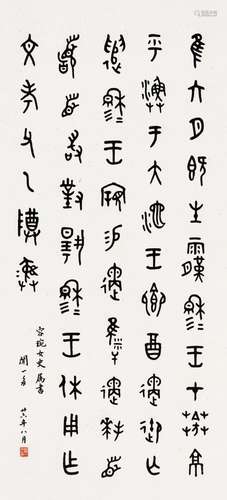 隹六月既生霸穆王才葊京
乎漁于大池王鄉酉遹御亡
遣穆王寴易遹遹拜首
首敢對揚穆王休用乍
文考父乙尊彝
女史屬書
聞一多
廿六年八月